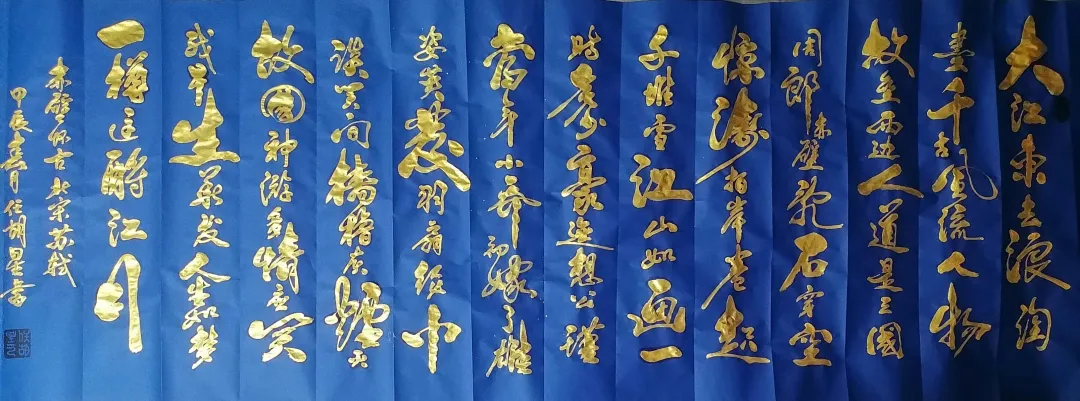 大江東去浪淘
盡千古風流人物
故垒西边人道是三國
周郎赤壁乱石穿空
惊濤拍岸卷起
千堆雪江山如画一
時多少豪杰遥想公瑾
當年小乔初嫁了雄
姿英发羽扇纶巾
谈笑间樯橹灰煙灭
故國神游多情应笑
我早生華发人生如梦
一樽还酹江月
赤壁怀古北宋苏轼
甲辰寅月 胡星书